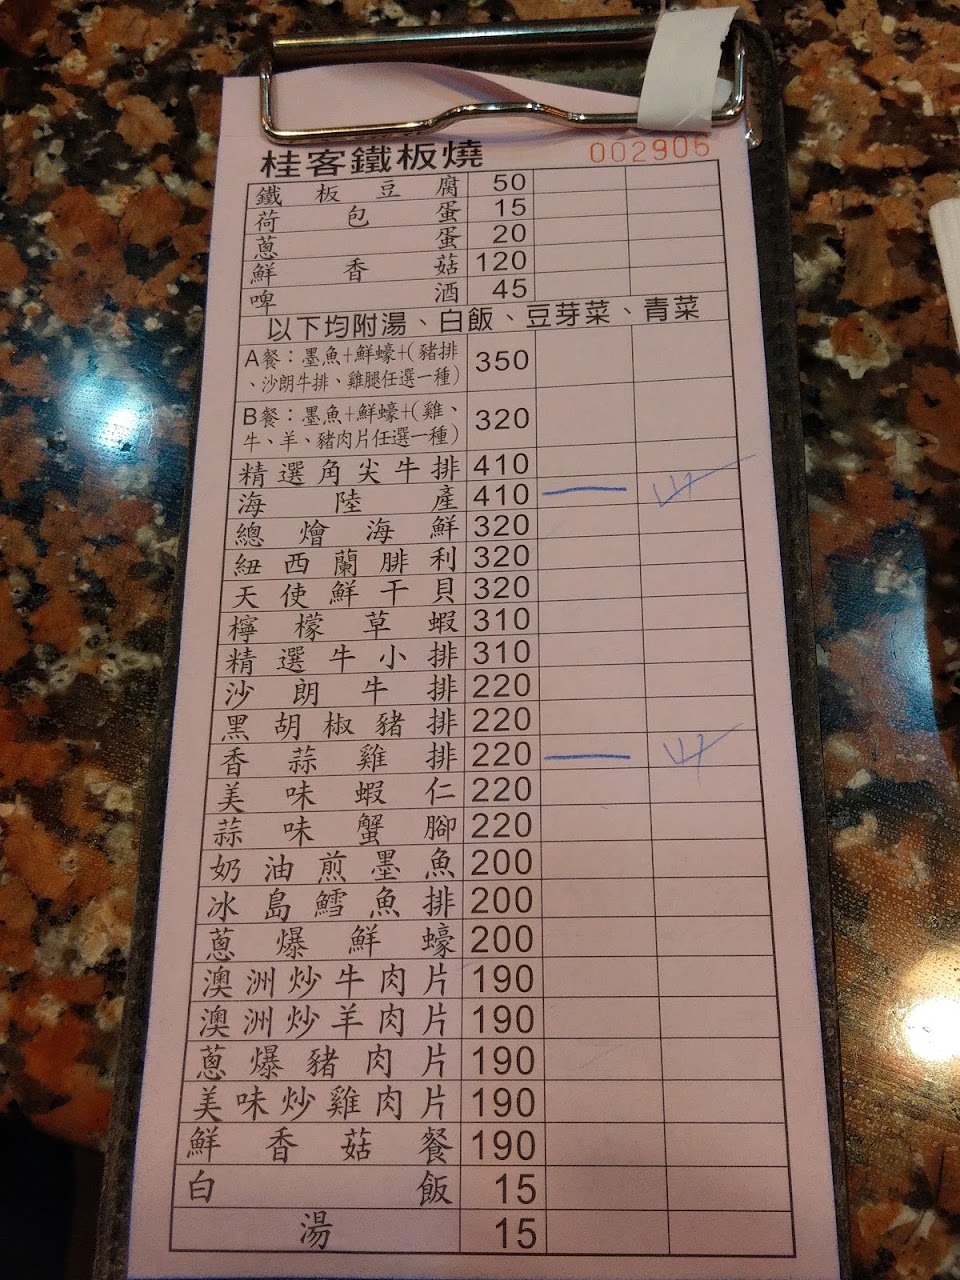 桂客鐵板燒 002906
鐵板豆腐 50
荷包蛋 15
蔥蛋 20
鮮香菇 120
啤酒 45
以下均附湯、白飯、豆芽菜、青菜
A餐：墨魚+鮮蠔+(豬排
、沙朗牛排、雞腿任選一種) 350
B餐：墨魚+鮮蠔+(雞、
牛、羊、豬肉片任選一種) 320
精選角尖牛排 410
海陸產 410 一
總燴海鮮 320
紐西蘭腓利 320
天使鮮干貝 320
檸檬草蝦 310
精選牛小排 310
沙朗牛排 220
黑胡椒豬排 220
香蒜雞排 220 一
美味蝦仁 220
蒜味蟹腳 220
奶油煎墨魚 200
冰島鱈魚排 200
蔥爆鮮蠔 200
澳洲炒牛肉片 190
澳洲炒羊肉片 190
蔥爆豬肉片 190
美味炒雞肉片 190
鮮香菇餐 190
白飯 15
湯 15